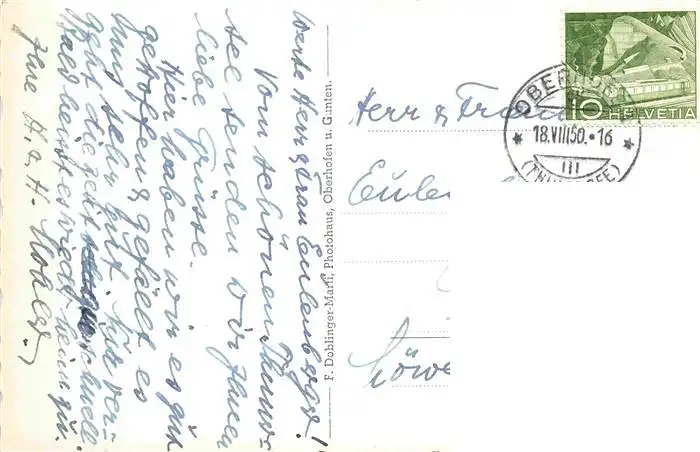 Werte Herr & Frau Eulenberger!
Vom schönen Thuner-
see senden wir Ihnen
liebe Grüsse.
Hier haben wir es gut
getroffen & gefällt es
uns sehr gut. Nur ver-
geht die Zeit schnell
bald heisst es wieder heim zu.
Ihre H. & H. Kohler.
F. Doblinger-Marti, Photohaus, Oberhofen u. Gunten.
Herr & Frau
Eulen
Löwe
OBERHOFEN
18.VIII50.•16
(THUNERSEE)
10 HELVETIA